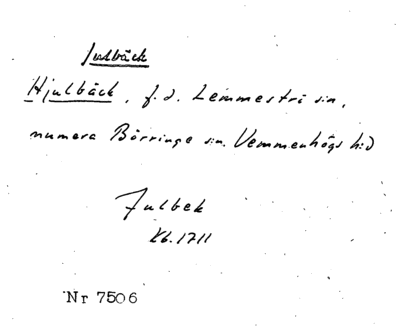 Julbäck
Hjulbäck, f.d. Lemmeströ sn,
numera Börringe sn. Vemmenhögs hd
Julbek
Kb. 1711
Nr 7506